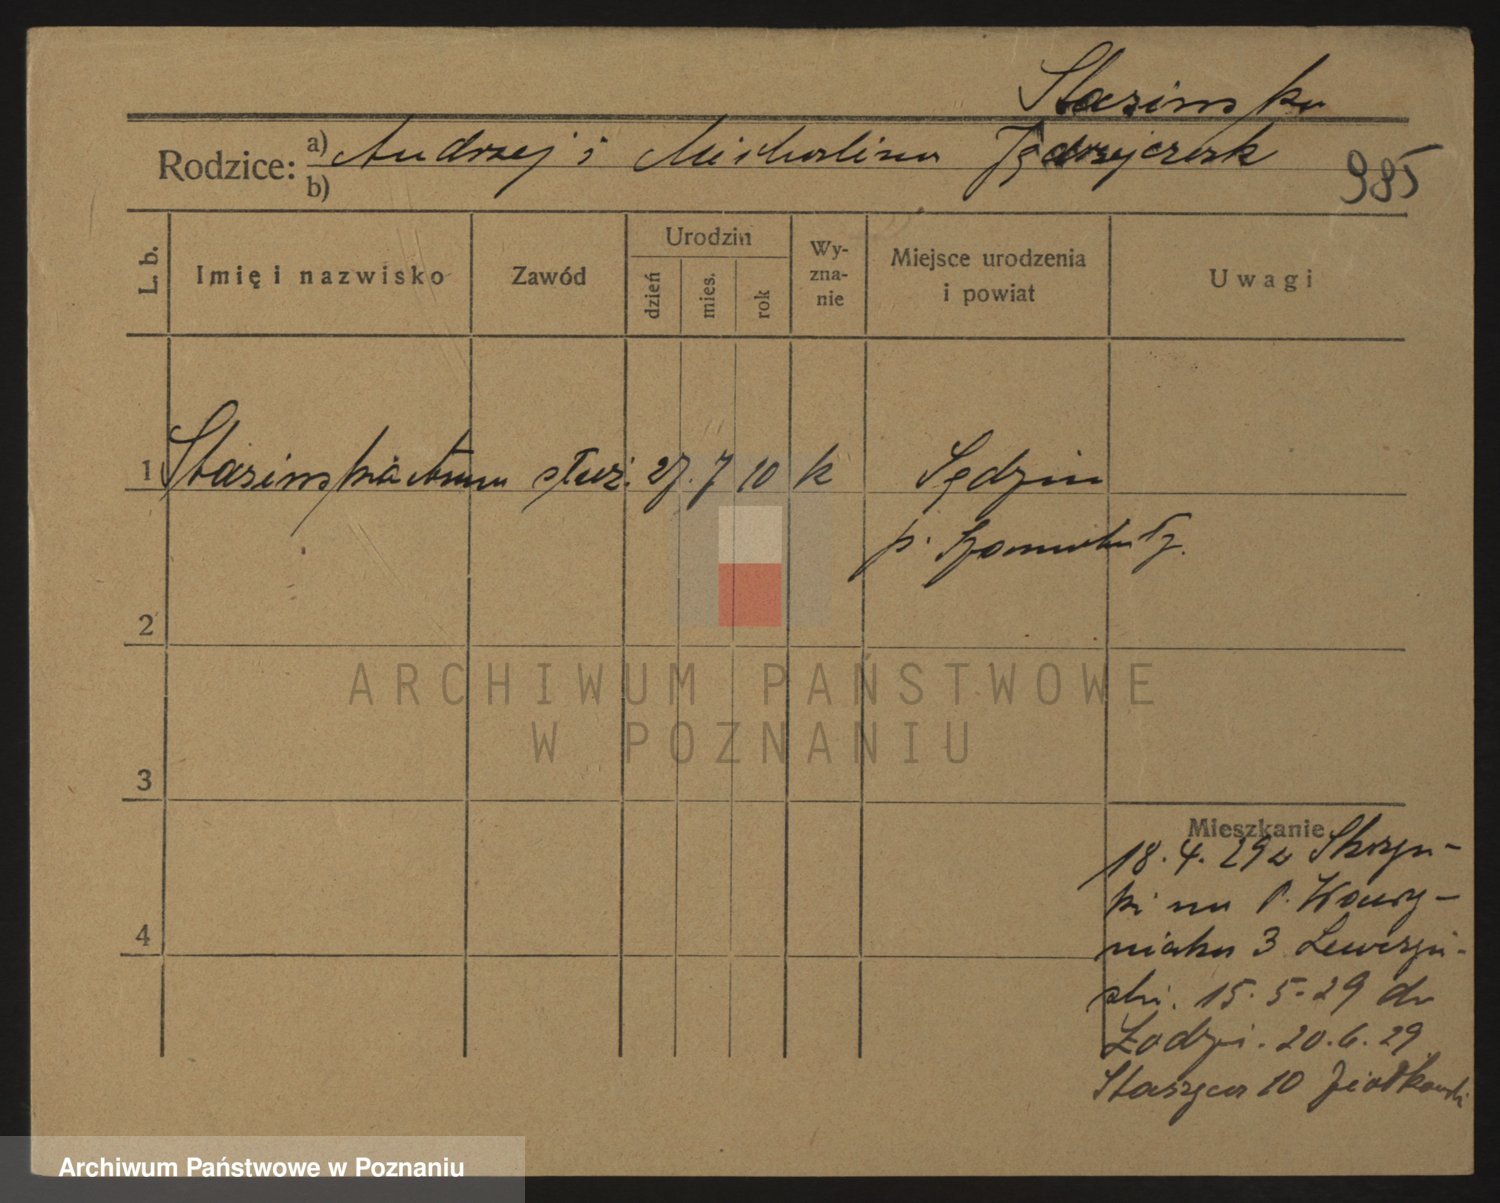 Stasińska
Rodzice: a) Andrzej i Michalina Jędrzejczak
b)
985
L. b.
Imię i nazwisko
Zawód
Urodzin
dzień
mies.
rok
Wy-
zna-
nie
Miejsce urodzenia
i powiat
Uwagi
1 Stasińska Anna służ. 27. 7 10 k Sędzin
p. Szamotuły.
2
ARCHIWUM PAŃSTWOWE
W POZNANIU
3
Mieszkanie
18. 4. 29 z Skrzyn-
ki na P. Wawrzy-
niaka 3
15. 5. 29 do
Łodzi. 20. 6. 29
Staszyca 10 Ziółkowski
4
Archiwum Państwowe w Poznaniu